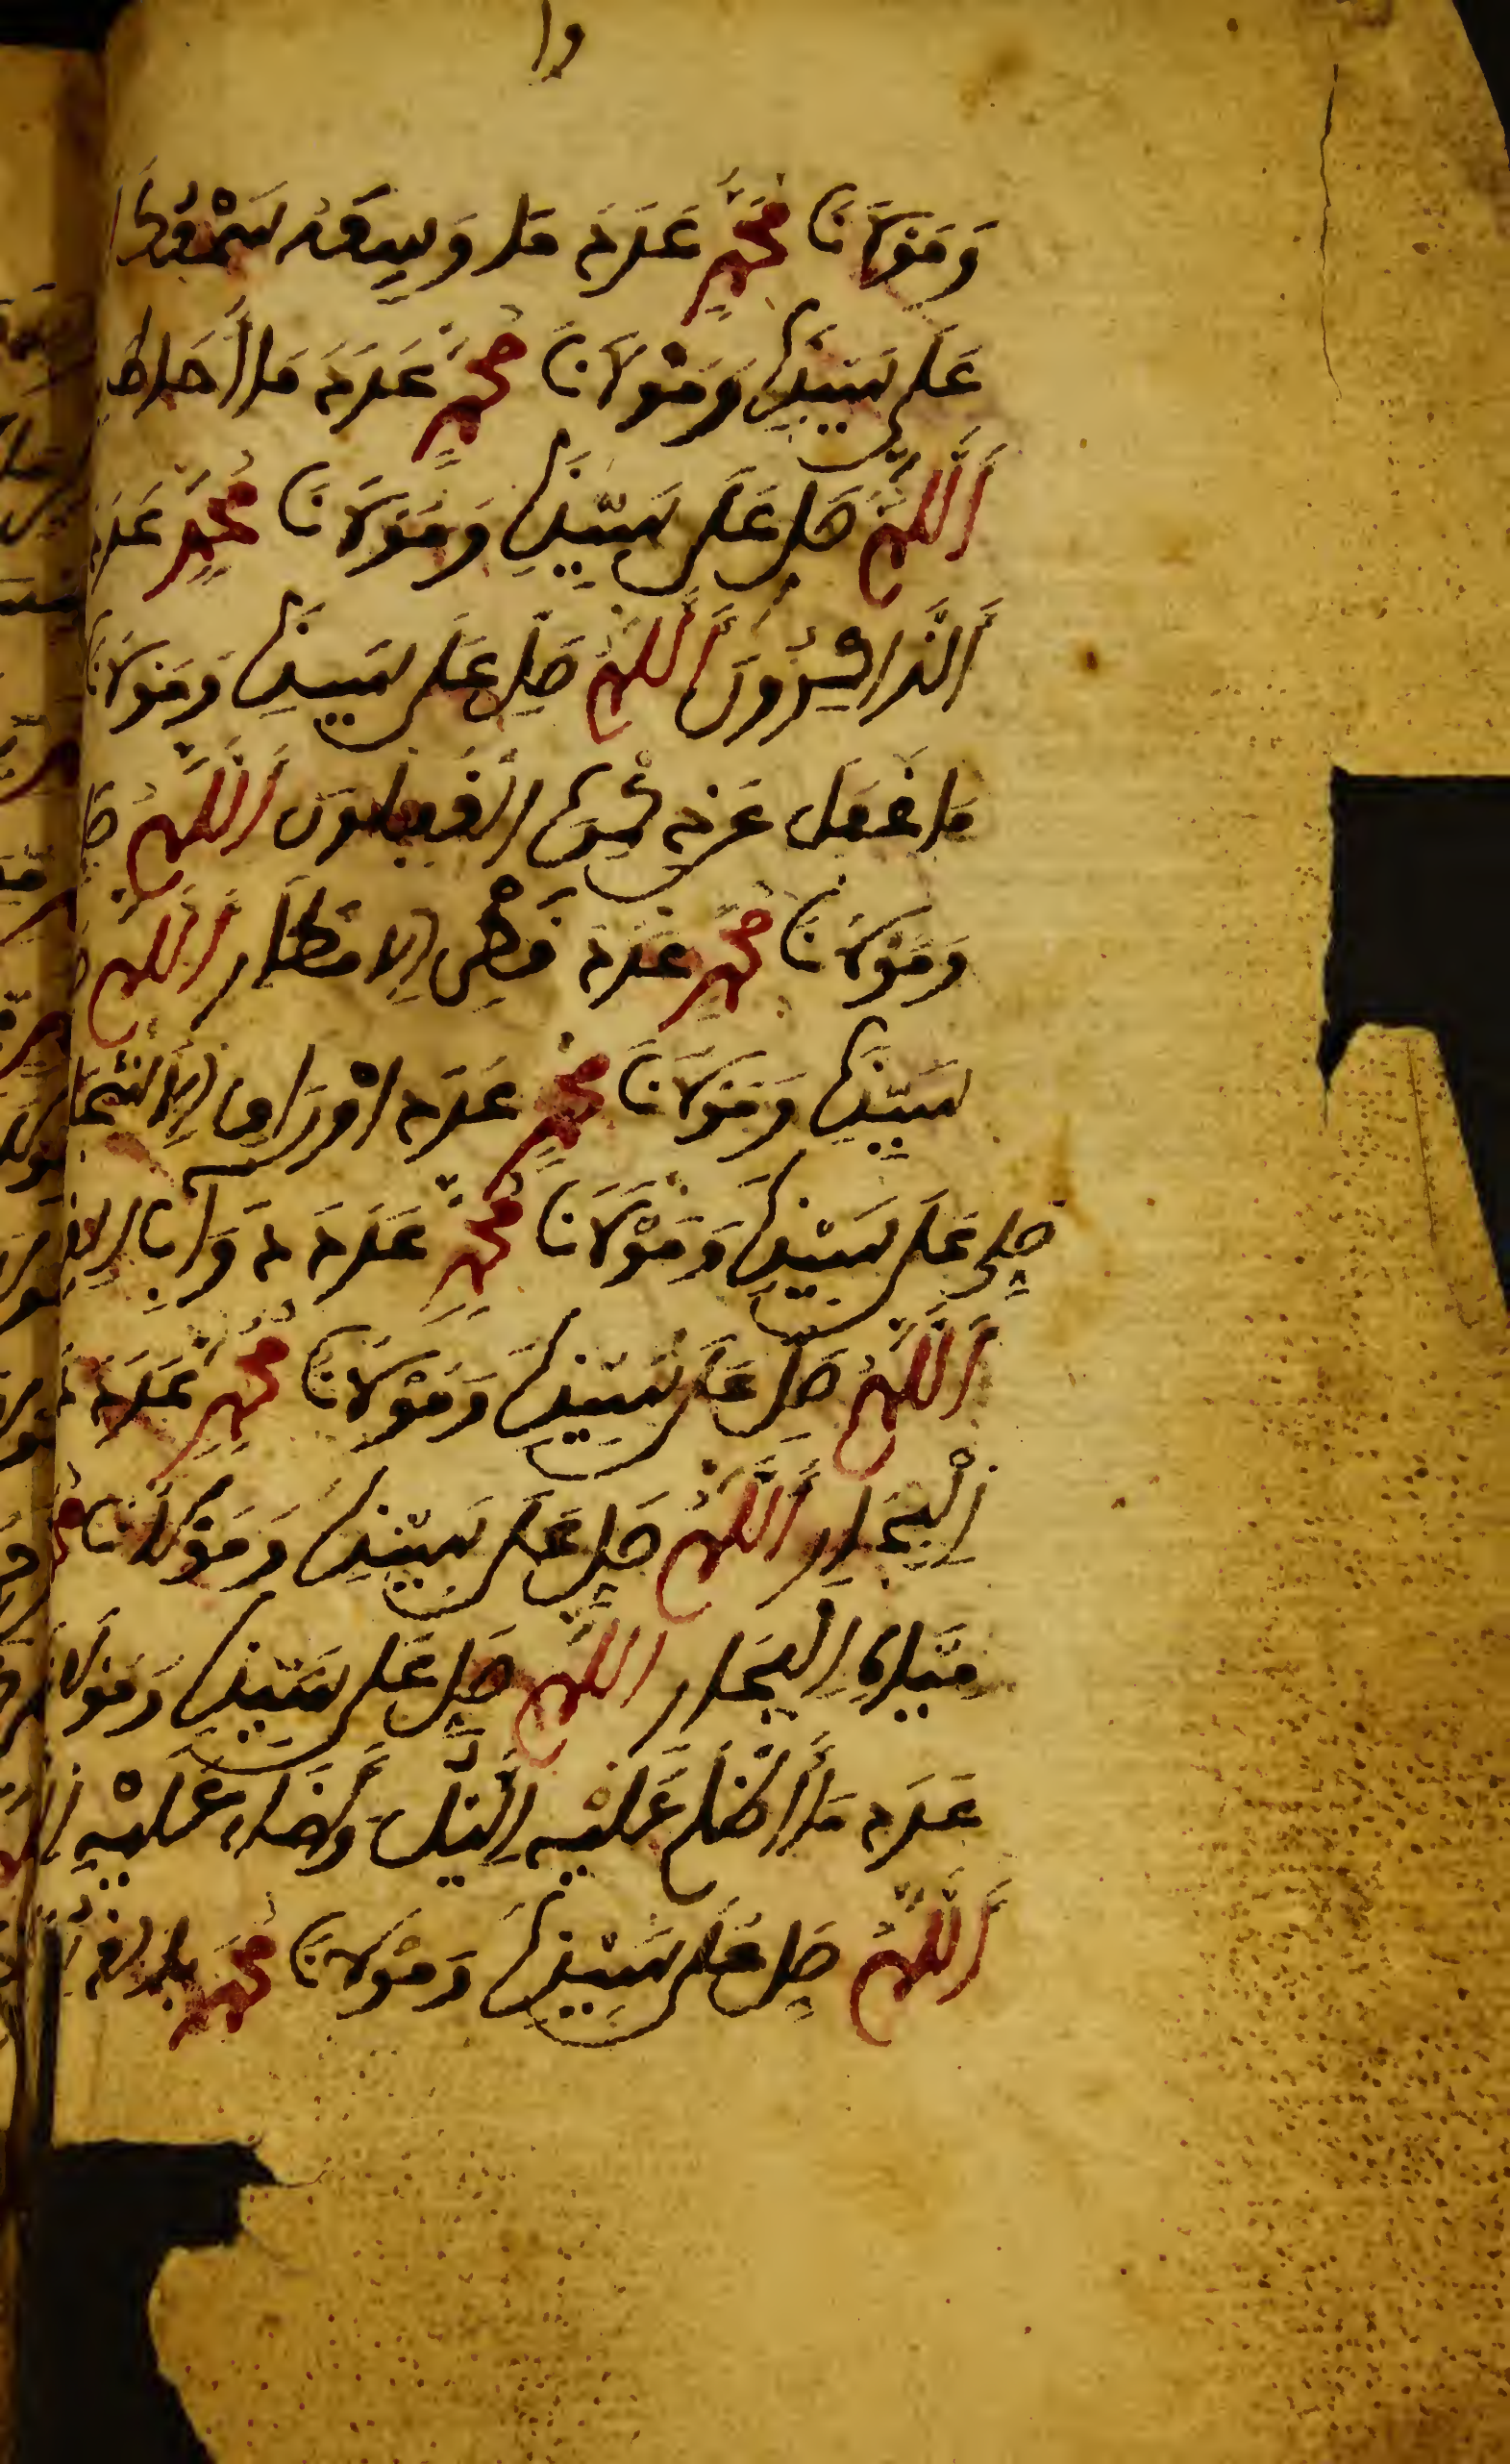 وا
وَمَوْلَانَا مُحَمَّدٍ عَدَدَ مَا وَسِعَهُ سَمْعُكَ
عَلَى سَيِّدِنَا وَمَوْلَانَا مُحَمَّدٍ عَدَدَ مَا أَحَاطَ
اَللَّهُمَّ صَلِّ عَلَى سَيِّدِنَا وَمَوْلَانَا مُحَمَّدٍ عَدَدَ
الذَّاكِرُونَ اَللَّهُمَّ صَلِّ عَلَى سَيِّدِنَا وَمَوْلَانَا
مَا غَفَلَ عَن ذِكْرِهِ الْغَٰفِلُونَ اَللَّهُمَّ صَلِّ
وَمَوْلَانَا مُحَمَّدٍ عَدَدَ قَطْرِ الْامْطَارِ اَللَّهُمَّ
سَيِّدِنَا وَمَوْلَانَا مُحَمَّدٍ عَدَدَ اوْرَاقِ الْاشْجَا
صَلِّ عَلَى سَيِّدِنَا وَمَوْلَانَا مُحَمَّدٍ عَدَدَ دَوَابِّ
اَللَّهُمَّ صَلِّ عَلَى سَيِّدِنَا وَمَوْلَانَا مُحَمَّدٍ عَدَدَ
الْبِحَارِ اَللَّهُمَّ صَلِّ عَلَى سَيِّدِنَا وَمَوْلَانَا
مِيَاهِ الْبِحَارِ اللَّهُمَّ صَلِّ عَلَى سَيِّدِنَا وَمَوْلَانَا
عَدَدَ مَا أَظْلَمَ عَلَيْهِ الَّيْلُ وَأَضَاءَ عَلَيْهِ
اَللَّهُمَّ صَلِّ عَلَى سَيِّدِنَا وَمَوْلَانَا مُحَمَّدٍ بِالْغُدُ